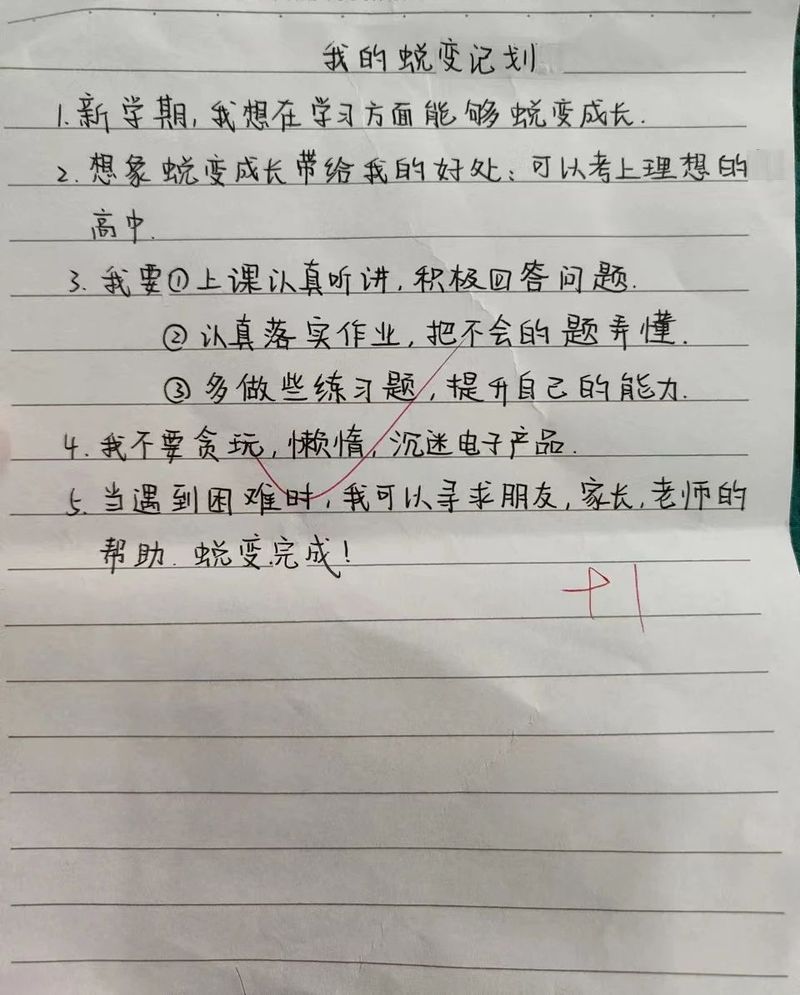 我的蜕变记划
1.新学期,我想在学习方面能够蜕变成长.
2.想象蜕变成长带给我的好处:可以考上理想的
高中.
3.我要①上课认真听讲,积极回答问题.
②认真落实作业,把不会的题弄懂.
③多做些练习题,提升自己的能力.
4.我不要贪玩,懒惰,沉迷电子产品.
5.当遇到困难时,我可以寻求朋友,家长,老师的
帮助.蜕变完成!
+1